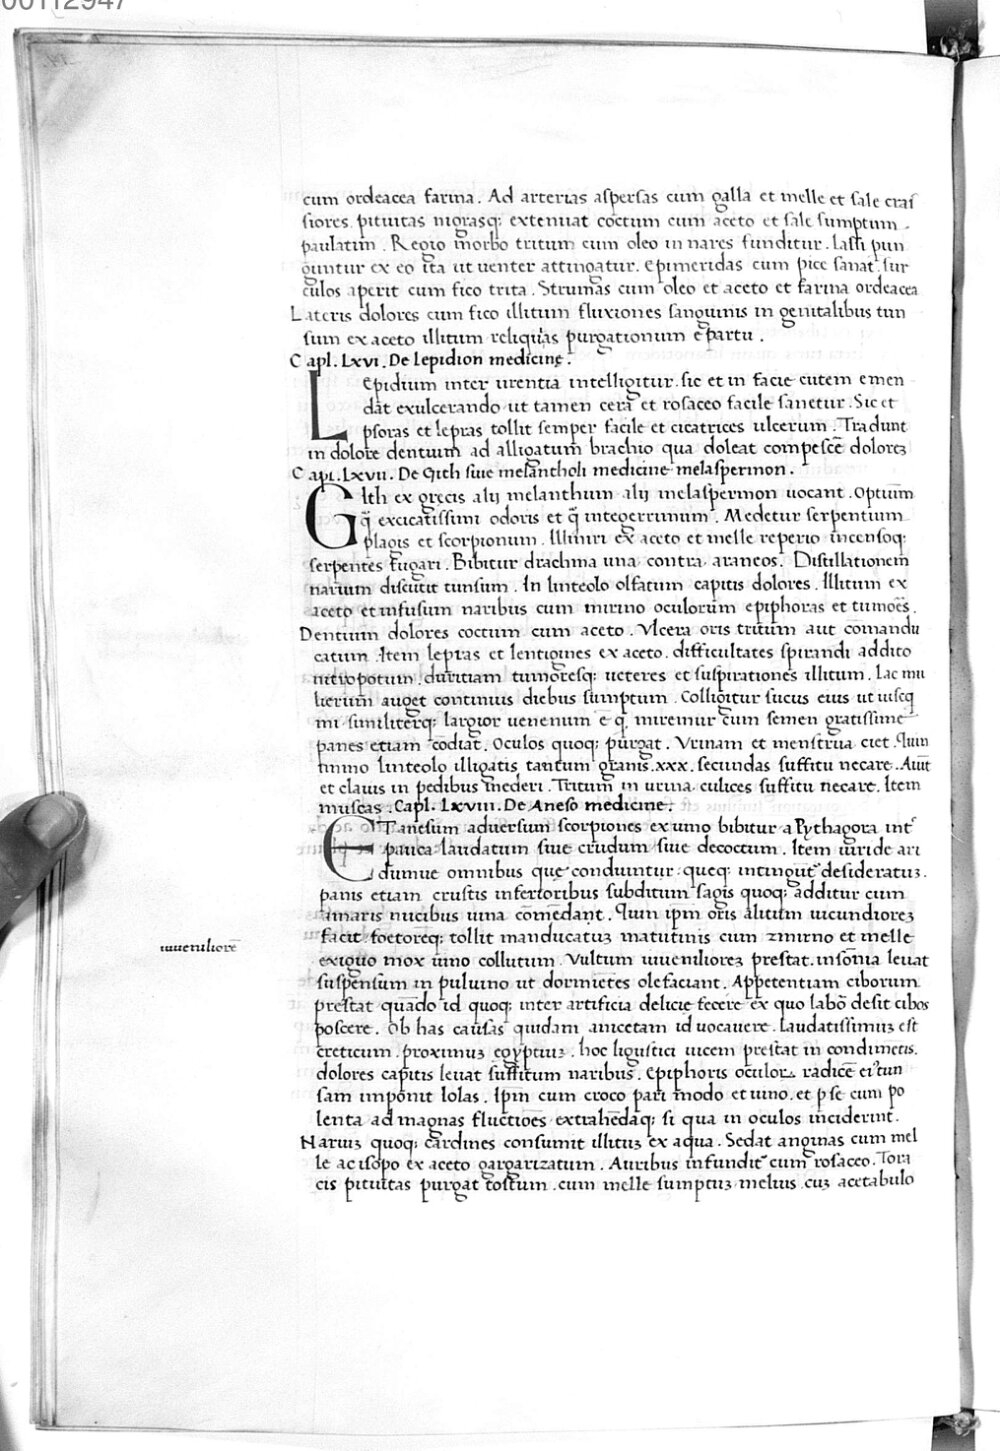 00112947
cum ordeacea farina. Ad arterias aspersas cum galla et melle et sale cras
siores pituitas nigrasq; extenuat coctum cum aceto et sale sumptum.
paulatim. Regio morbo tritum cum oleo in nares funditur. Lassi pun
guntur ex eo ita ut uenter attingatur. Epimeridas cum pice sanat. sur
culos aperit cum fico trita. Strumas cum oleo et aceto et farina ordeacea
Lateris dolores cum fico illitum fluxiones sanguinis in genitalibus tun
sum ex aceto illitum reliquias purgationum e partu.
Capl. Lxvi. De Lepidion medicinę.
Lepidium inter urentia intelligitur. sic et in facie cutem emen
dat exulcerando ut tamen cera et rosaceo facile sanetur. Sic et
psoras et lepras tollit semper facile et cicatrices ulcerum. Tradunt
in dolore dentium ad alligatum brachio qua doleat compescē dolorēꝫ
Capi. Lxvii. De Gith siue melantholi medicine melaspermon.
Gith ex grecis alij melanthium alij melaspermon uocant. Optiūm
q̄ excicatissimi odoris et q̄ integerrimum. Medetur serpentium
plagis et scorpionum. Illiniri ex aceto et melle reperio incensoq;
serpentes fugari. Bibitur drachma una contra araneos. Distillationem
narium discutit tunsum. In linteolo olfatum capitis dolores. Illitum ex
aceto et infusum naribus cum mirino oculorum epiphoras et tumoēs.
Dentium dolores coctum cum aceto. Vlcera oris tritum aut comandu
catum. Item lepras et lentigines ex aceto. difficultates spirandi addito
nitro potum. duritiam tumoresq; ueteres et suspirationes illitum. Lac mu
lierum auget continuis diebus sumptum. Colligitur sucus eius ut iuscq
mi similiterq; largior uenenum ē q̄ miremur cum semen gratissime
panes etiam condiat. Oculos quoq; purgat. Vrinam et menstrua ciet. Quin
immo linteolo illigatis tantum granis .xxx. secundas suffitu necare. Aiūt
et clauis in pedibus mederi. Tritum in urina culices suffitu necare. Item
muscas. Capl. Lxviii. De Aneso medicine.
ET anesum aduersum scorpiones ex uino bibitur a Pythagora int̄
pauca laudatum siue crudum siue decoctum. Item uiride ari
dumue omnibus quę conduintur queq; intingūt desideratuꝫ.
panis etiam crustis inferioribus subditum sagis quoq; additur cum
amaris nucibus uina comēdant. Quin ipm̄ oris alitum iucundioreꝫ
facit foetoreq; tollit manducatuꝫ matutinis cum zmirno et melle
iuueniliorē
exiguo mox uino collutum. Vultum iuuenilioreꝫ prestat. insonia leuat
suspensum in puluino ut dormiētes olefaciant. Appetentiam ciborum
prestat quādo id quoq; inter artificia delicie fecere ex quo labō desit cibos
poscere. Ob has causas quidam anicetam id uocauere. Laudatissimuꝫ est
creticum. proximuꝫ egyptiuꝫ. hoc ligustici uicem prestat in condimētis.
dolores capitis leuat suffitum naribus. Epiphoris oculoꝝ radicē ei' tun
sam imponit Iolas. Ipm̄ cum croco pari modo et uino. et p se cum po
lenta ad magnas fluctioēs extrahēdaq; si qua in oculos inciderint.
Nariuꝫ quoq; cardines consumit illituꝫ ex aqua. Sedat anginas cum mel
le ac isopo ex aceto gargarizatum. Auribus infundit cum rosaceo. Tora
cis pituitas purgat tostum. cum melle sumptuꝫ melius cuꝫ acetabulo